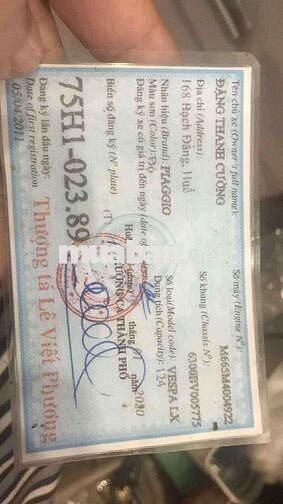 Tên chủ xe (Owner's full name):
ĐẶNG THANH CƯỜNG
Địa chỉ (Address):
168 Bạch Đằng, Huế
Nhãn hiệu (Brand): PIAGGIO
Màu sơn (Color): Đỏ
Đăng ký xe có giá trị đến ngày (date of
Biển số đăng ký (N° plate)
75H1-023.89
Đăng ký lần đầu ngày:
Date of first registration
05/04/2011
Số máy (Engine N°):
M665M4004922
Số khung (Chassis N°):
6300BV005775
Số loại (Model code): VESPA LX
Dung tích (Capacity): 124
Huế,
tháng 01 năm 2020
TRƯỞNG CA THÀNH PHỐ
Thượng tá Lê Viết Phương